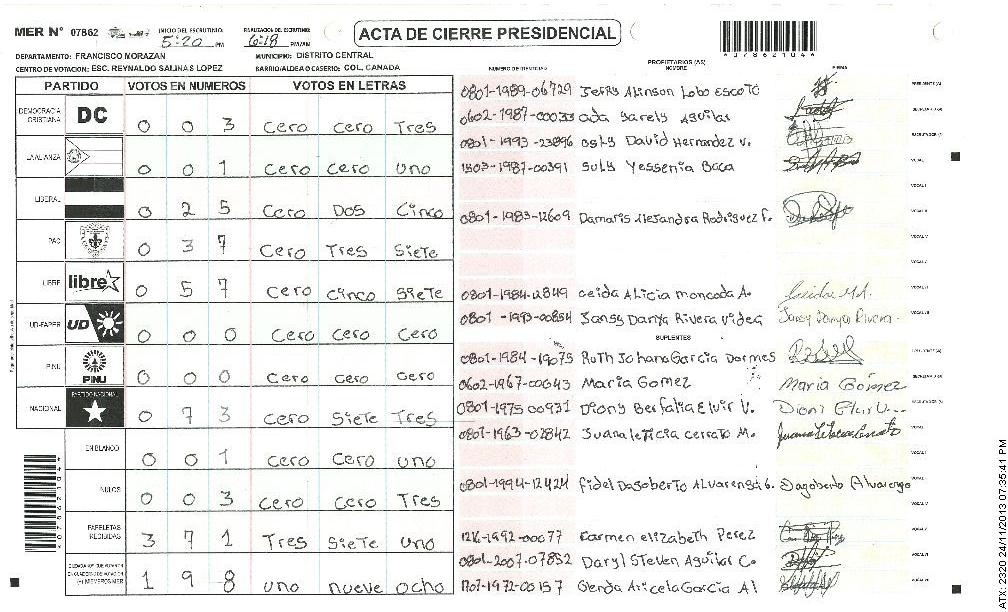 MER N° 07862 INICIO DEL ESCRUTINIO: 5:20 PM FINALIZACION DEL ESCRUTINIO: 6:18 PM/AM ACTA DE CIERRE PRESIDENCIAL
DEPARTAMENTO: FRANCISCO MORAZAN MUNICIPIO: DISTRITO CENTRAL
CENTRO DE VOTACION: ESC. REYNALDO SALINAS LOPEZ BARRIO/ALDEA O CASERIO: COL. CANADA
PARTIDO VOTOS EN NUMEROS VOTOS EN LETRAS
DEMOCRACIA CRISTIANA DC 0 0 3 cero cero Tres
LA ALIANZA 0 0 1 cero cero uno
LIBERAL 0 2 5 Cero Dos Cinco
PAC 0 3 7 Cero Tres Siete
LIBRE libre 0 5 7 cero cinco Siete
UD-FAPER UD 0 0 0 Cero Cero Cero
PINU PINU 0 0 0 Cero Cero cero
NACIONAL PARTIDO NACIONAL 0 7 3 cero Siete Tres
EN BLANCO 0 0 1 cero Cero uno
NULOS 0 0 3 cero Cero Tres
PAPELETAS RECIBIDAS 3 7 1 Tres Siete uno
1 9 8 uno nueve ocho
NUMERO DE IDENTIDAD PROPIETARIOS (AS) NOMBRE FIRMA
0801-1989-06729 Jerry Alinson Lobo escoto
0602-1987-00033 Ada Sarely Aguilar
0801-1993-23896 Osly David Hernandez v.
1503-1987-00391 Suly Yessenia Baca
0801-1983-12609 Damaris Alejandra Rodriguez F.
0801-1984-12849 Ceida Alicia moncada A.
0801-1993-00854 Jansy Danya Rivera Videa
SUPLENTES
0801-1984-19075 Ruth Johana Garcia Dormes
0602-1967-00043 Maria Gomez Maria Gómez
0801-1975 00931 Diony Berfalia Elvir V.
0801-1963-02842 Juana leticia cerrato M.
0801-1994-12424 Fidel Dagoberto Alvarenga G. Dagoberto Alvarenga
Carmen elizabeth Perez
0801-2007-07852 Daryl Steven Aguilar C.
1707-1972-00157 Glenda Aricela Garcia Al
ATX-2320 24/11/2013 07:35:41 PM